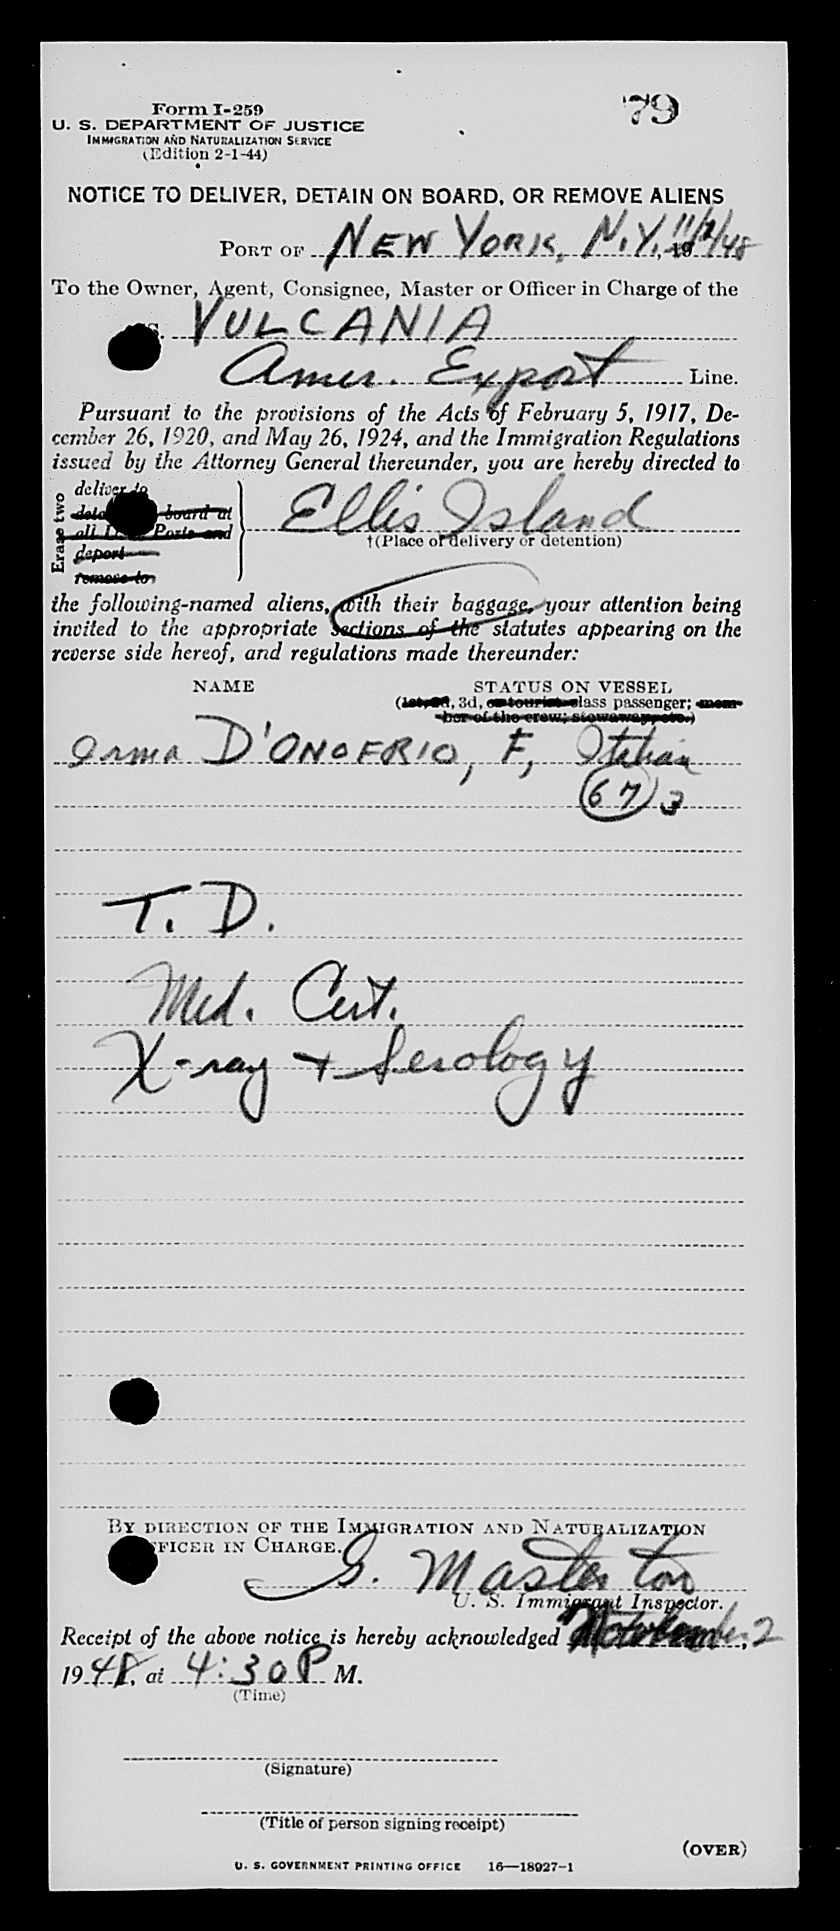 79
Form I-259
U. S. DEPARTMENT OF JUSTICE
IMMIGRATION AND NATURALIZATION SERVICE
(Edition 2-1-44)
NOTICE TO DELIVER, DETAIN ON BOARD, OR REMOVE ALIENS
PORT OF NEW YORK, N.Y., 11/2/48
To the Owner, Agent, Consignee, Master or Officer in Charge of the
S. VULCANIA
Amer. Export Line.
Pursuant to the provisions of the Acts of February 5, 1917, De-
cember 26, 1920, and May 26, 1924, and the Immigration Regulations
issued by the Attorney General thereunder, you are hereby directed to
Erase two
deliver to
board at
all Ports and
deport
remove to
Ellis Island
†(Place of delivery or detention)
the following-named aliens, with their baggage, your attention being
invited to the appropriate sections of the statutes appearing on the
reverse side hereof, and regulations made thereunder:
NAME STATUS ON VESSEL
(1st, 2d, 3d, or tourist class passenger; mem-
ber of the crew; stowaway, etc.)
Irma D'ONOFRIO, F, Italian
67 3
T. D.
Med. Cert.
X-ray + Serology
BY DIRECTION OF THE IMMIGRATION AND NATURALIZATION
OFFICER IN CHARGE.
G. Masterton
U. S. Immigrant Inspector.
Receipt of the above notice is hereby acknowledged November, 2
1948, at 4:30 P M.
(Time)
(Signature)
(Title of person signing receipt)
(OVER)
U. S. GOVERNMENT PRINTING OFFICE 16—18927-1